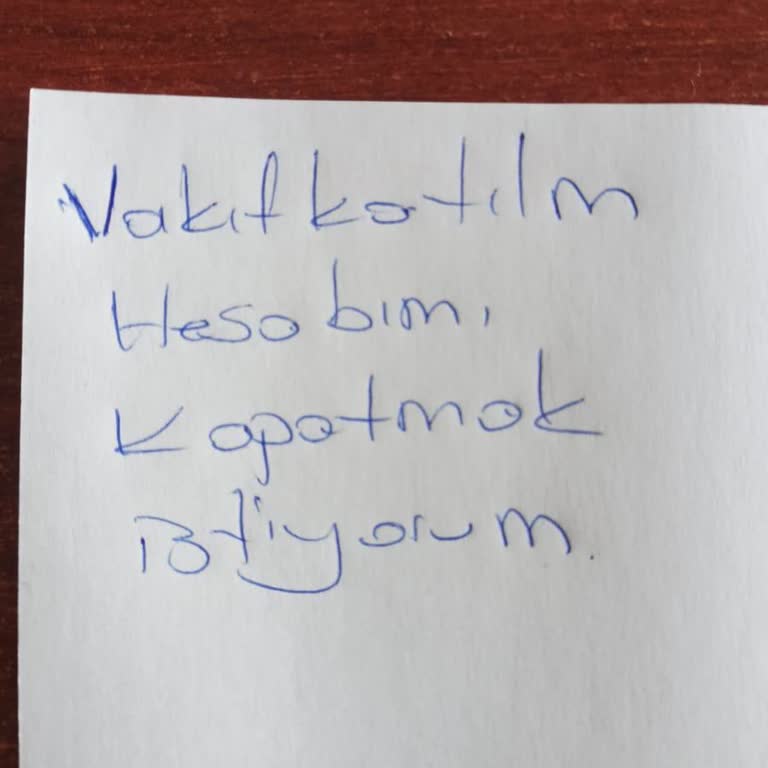 Vakıf katılm
Hesabımı
Kapatmak
istiyorum.